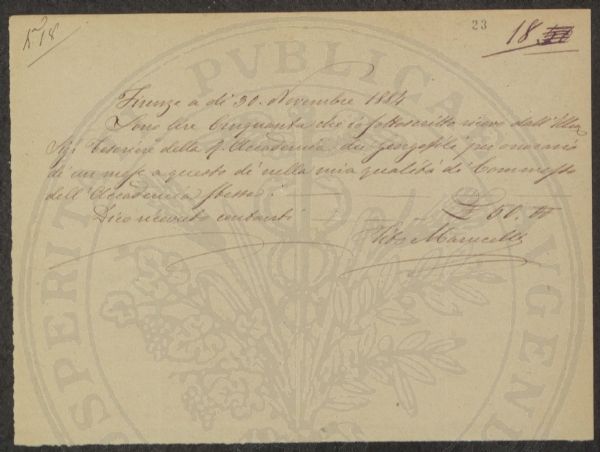 N° 18
23
18
Firenze a dì 30. Novembre 1884
Sono lire Cinquanta che io sottoscritto ricevo dall'Illmo
Sigr Cassiere della R. Accademia dei Georgofili per onorario
di un mese a questo dì nella mia qualità di Commesso
dell'Accademia stessa.
Dico ricevuto contanti £ 50.
PROSPERITATI PUBLICAE AUGENDAE